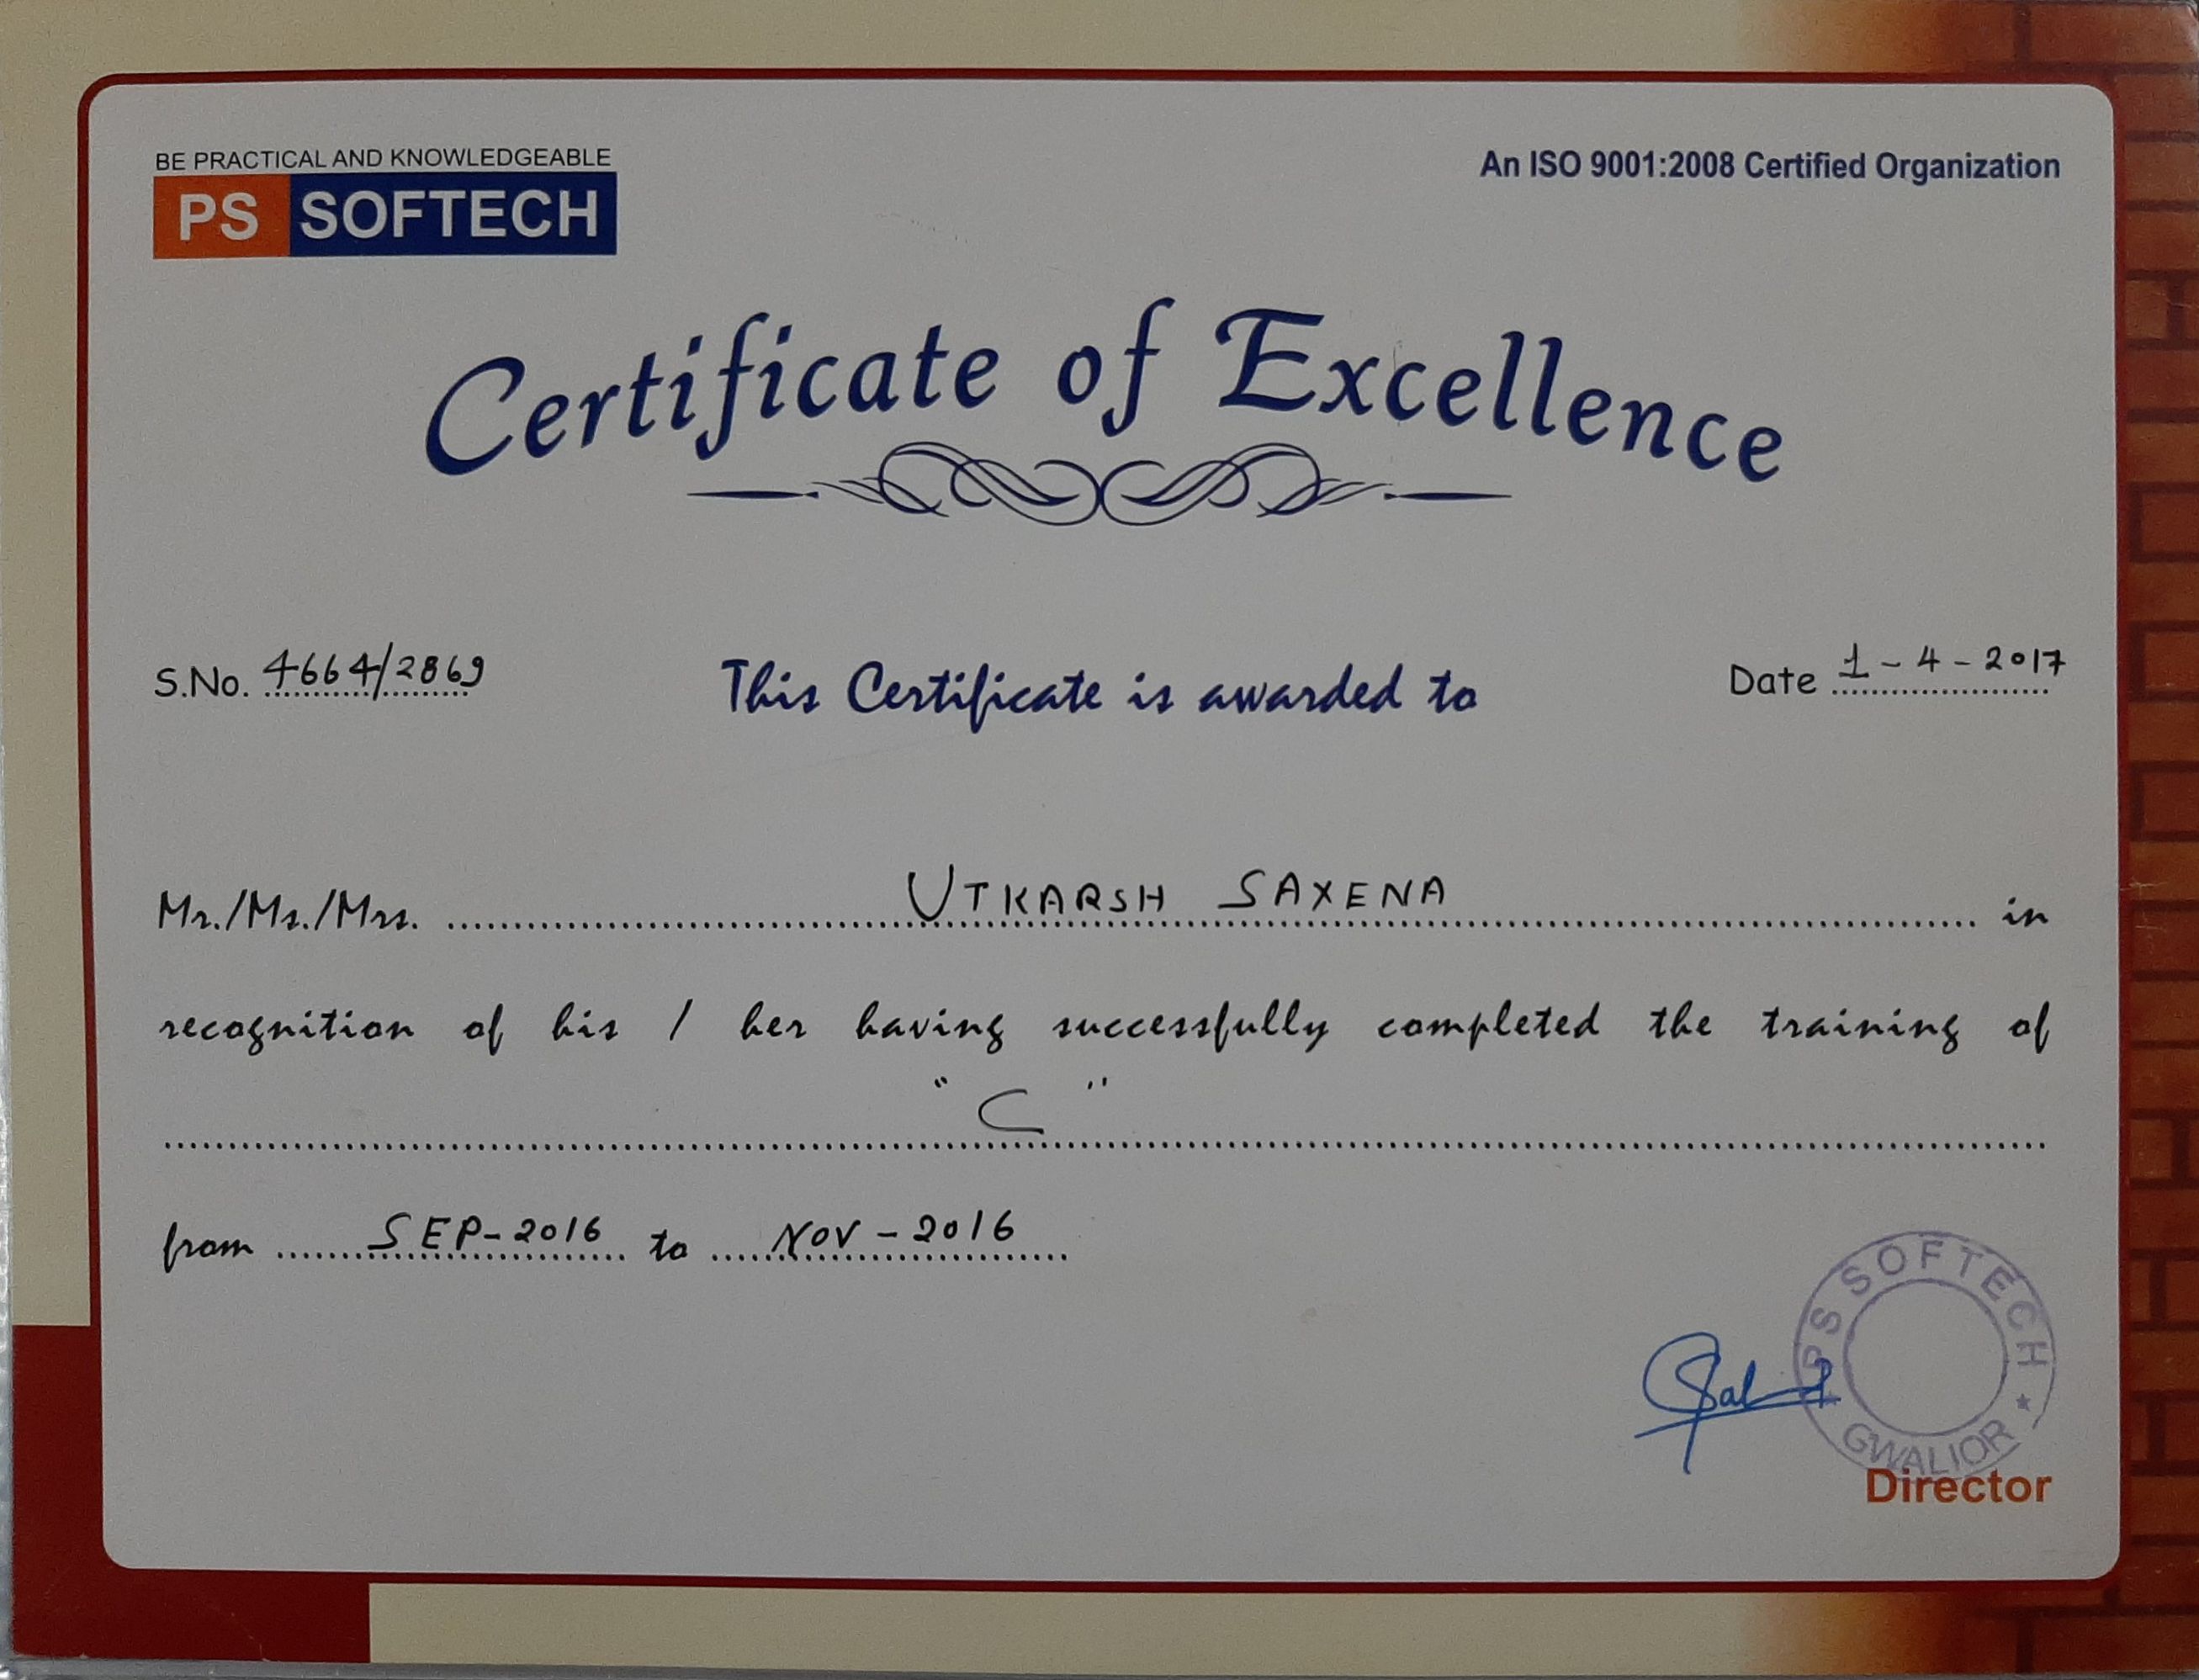 BE PRACTICAL AND KNOWLEDGEABLE
PS SOFTECH
An ISO 9001:2008 Certified Organization
Certificate of Excellence
S.No. 4664/2869
This Certificate is awarded to
Date 1-4-2017
Mr./Ms./Mrs. UTKARSH SAXENA in
recognition of his / her having successfully completed the training of
"C"
from SEP-2016 to NOV-2016
PS SOFTECH
GWALIOR
Director